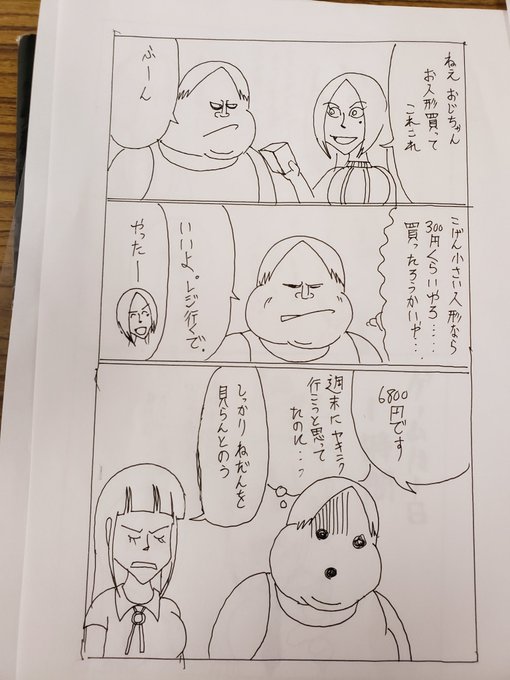 ねえ おじちゃん
お人形買って
これこれ
ふーん
こげん小さい人形なら
300円くらいやろ……
買ったろうかいや…
いいよ。レジ行くで。
やったー
6800
円です
週末にヤキニク
行こうと思って
たのに…
しっかり ねだんを
見らんとのう